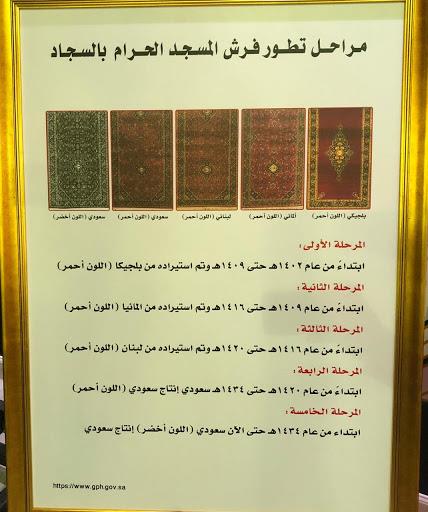 مراحل تطور فرش المسجد الحرام بالسجاد
بلجيكي (اللون أحمر)
ألماني (اللون أحمر)
لبناني (اللون أحمر)
سعودي (اللون أحمر)
سعودي (اللون أخضر)
المرحلة الأولى:
ابتداءً من عام ١٤٠٢هـ حتى ١٤٠٩هـ وتم استيراده من بلجيكا (اللون أحمر)
المرحلة الثانية:
ابتداءً من عام ١٤٠٩هـ حتى ١٤١٦هـ وتم استيراده من المانيا (اللون أحمر)
المرحلة الثالثة:
ابتداءً من عام ١٤١٦هـ حتى ١٤٢٠هـ وتم استيراده من لبنان (اللون أحمر)
المرحلة الرابعة:
ابتداءً من عام ١٤٢٠هـ حتى ١٤٣٤هـ سعودي إنتاج سعودي (اللون أحمر)
المرحلة الخامسة:
ابتداء من عام ١٤٣٤هـ حتى الآن سعودي (اللون أخضر) إنتاج سعودي
https://www.gph.gov.sa